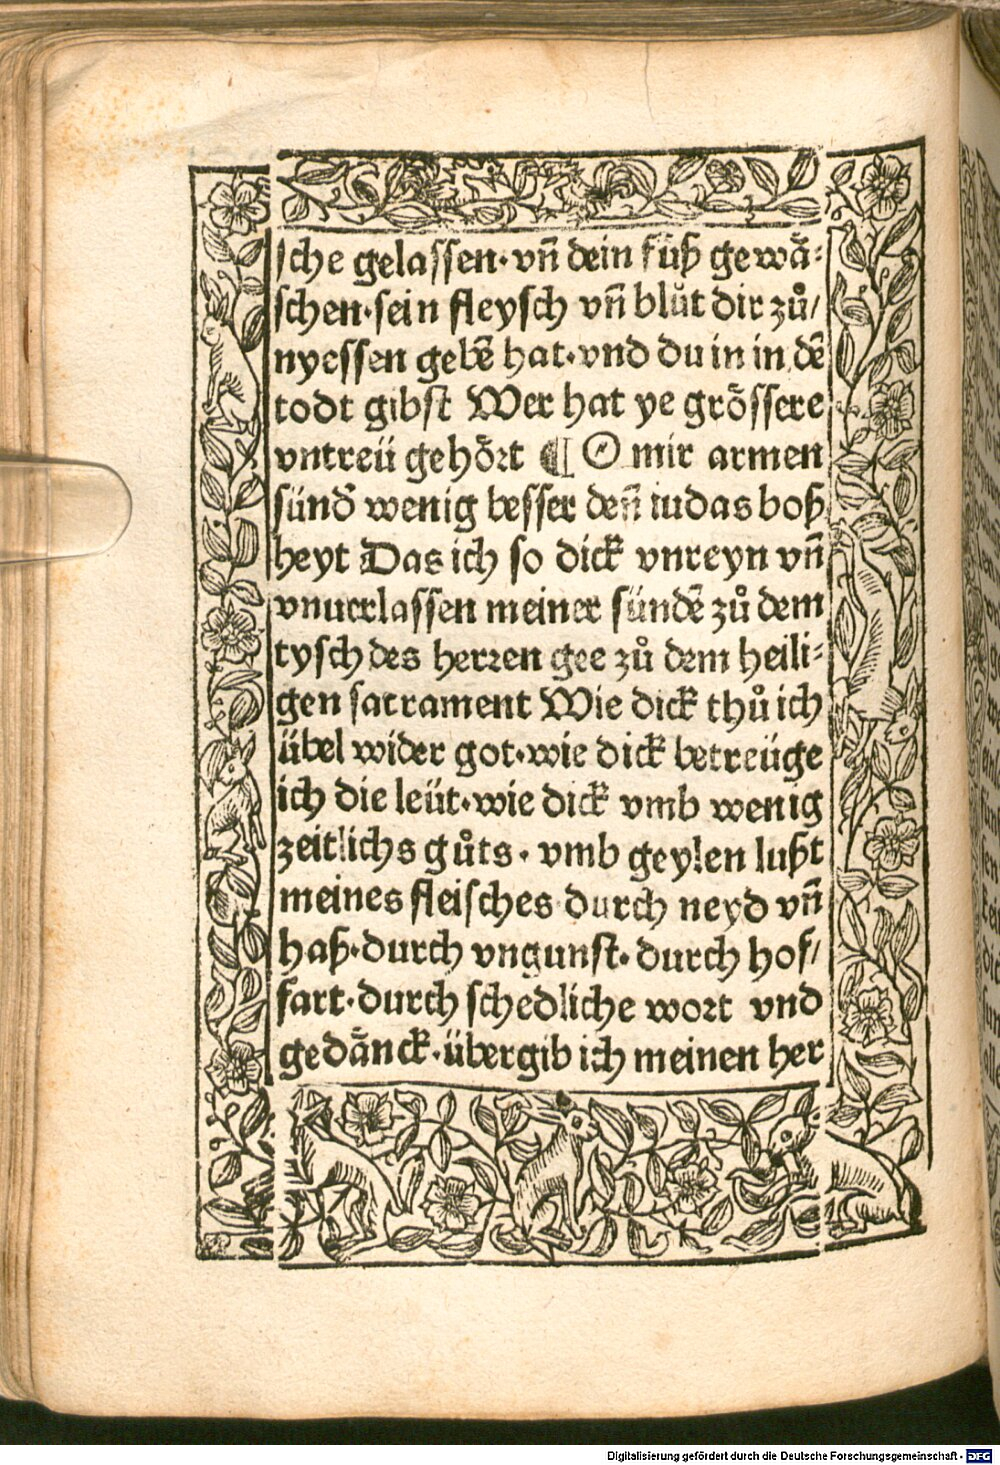 sche gelassen·vñ dein fuͤß gewaͤ⸗
schen·sein fleysch vñ bluͦt dir zuͦ/
nyessen gebē hat·vnd du in in dē
todt gibst Wer hat ye groͤssere
vntreü gehoͤrt ¶ O mir armen
sünd̄ wenig besser deñ iudas boß
heyt Das ich so dick vnreyn vñ
vnuerlassen meiner sündē zuͦ dem
tysch des herren gee zuͦ dem heili⸗
gen sacrament Wie dick thuͦ ich
übel wider got·wie dick betreüge
ich die leüt·wie dick vmb wenig
zeitlichs guͦts·vmb geylen lußt
meines fleisches durch neyd vñ
haß·durch vngunst·durch hof/
fart·durch schedliche wort vnd
gedaͤnck·übergib ich meinen her
Digitalisierung gefördert durch die Deutsche Forschungsgemeinschaft - DFG